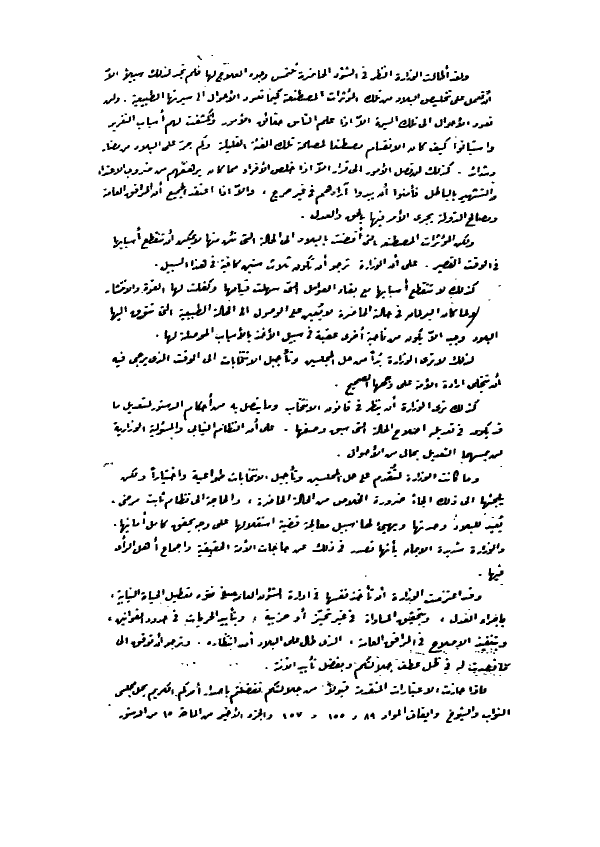 ولقد أطالت الوزارة النظر فى الشئون الحاضرة تلتمس وجوه العلاج لها فلم تجد لذلك سبيلا الا
أن تعمل على تخليص البلاد من تلك المؤثرات المصطنعة كيما تعود الأحوال الى سيرتها الطبيعية . ولن
تعود الأحوال الى تلك السيرة الا اذا علم الناس حقائق الأمور وتكشفت لهم أسباب التغرير
واستبانوا كيف كان الانقسام مصطنعا لمصلحة تلك الفئة القليلة وكم جر على البلاد من مضار
وشدائد . كذلك لن تصل الأمور الى قرار الا اذا خلص الأفراد مما كان يرهقهم من ضروب الاعتداء
والتشهير بالباطل فأمنوا أن يبدوا آراءهم فى غير حرج ، والا اذا اعتقد الجميع أن المرافق العامة
ومصالح الدولة يجرى الأمر فيها بالحق والعدل .
ولكن المؤثرات المصطنعة التى أفضت بالبلاد الى الحالة التى نشكو منها لا يمكن أن تنقطع أسبابها
فى الوقت القصير . على أن الوزارة ترجو أن تكون ثلاث سنين كافية فى هذا السبيل .
كذلك لا تنقطع أسبابها مع بقاء العوامل التى سهلت قيامها وكفلت لها القوة والانتشار
ولما كان البرلمان فى حالته الحاضرة لا يعين على الوصول الى الحالة الطبيعية التى تتوق اليها
البلاد وجب ألا يكون من ناحية أخرى عقبة فى سبيل الأخذ بالأسباب الموصلة لها .
لذلك لا ترى الوزارة بدا من حل المجلسين وتأجيل الانتخابات الى الوقت الذى يرجى فيه
أن تتجلى ارادة الأمة على وجهها الصحيح .
كذلك ترى الوزارة أن ينظر فى قانون الانتخاب وما يتصل به من أحكام الدستور لتعديل ما
قد يكون فى تعديله اصلاح الحالة التى سبق وصفها . على أن النظام النيابى والمسئولية الوزارية
لن يمسهما التعديل بحال من الأحوال .
وما كانت الوزارة لتقدم على حل المجلسين وتأجيل الانتخابات طواعية واختيارا ولكن
يلجئها الى ذلك الجاء ضرورة الخلاص من الحالة الحاضرة ، والحاجة الى نظام ثابت مرضى ،
يعيد للبلاد وحدتها ويهيئ لها سبيل معالجة قضية استقلالها على وجه يحقق كامل أمانيها .
والوزارة شديدة الايمان بأنها تصدر فى ذلك عن حاجات الأمة الحقيقية واجماع أهل الرأى
فيها .
وقد اعتزمت الوزارة أن تأخذ نفسها فى ادارة الشئون العامة فى فترة تعطيل الحياة النيابية ،
باجراء العدل ، وتحقيق المساواة فى غير تحيز أو حزبية ، وتأييد الحريات فى حدود القوانين ،
وبتنفيذ الاصلاح فى المرافق العامة ، الذى طال على البلاد أمد انتظاره . وترجو أن توفق الى
ما تصدت له فى ظل عطف جلالتكم وبفضل تأييد الأمة .
فاذا حازت الاعتبارات المتقدمة قبولا من جلالتكم تفضلتم باصدار أمركم الكريم بحل مجلسى
النواب والشيوخ وايقاف المواد ٨٩ و ١٥٥ و ١٥٧ والجزء الأخير من المادة ١٥ من الدستور